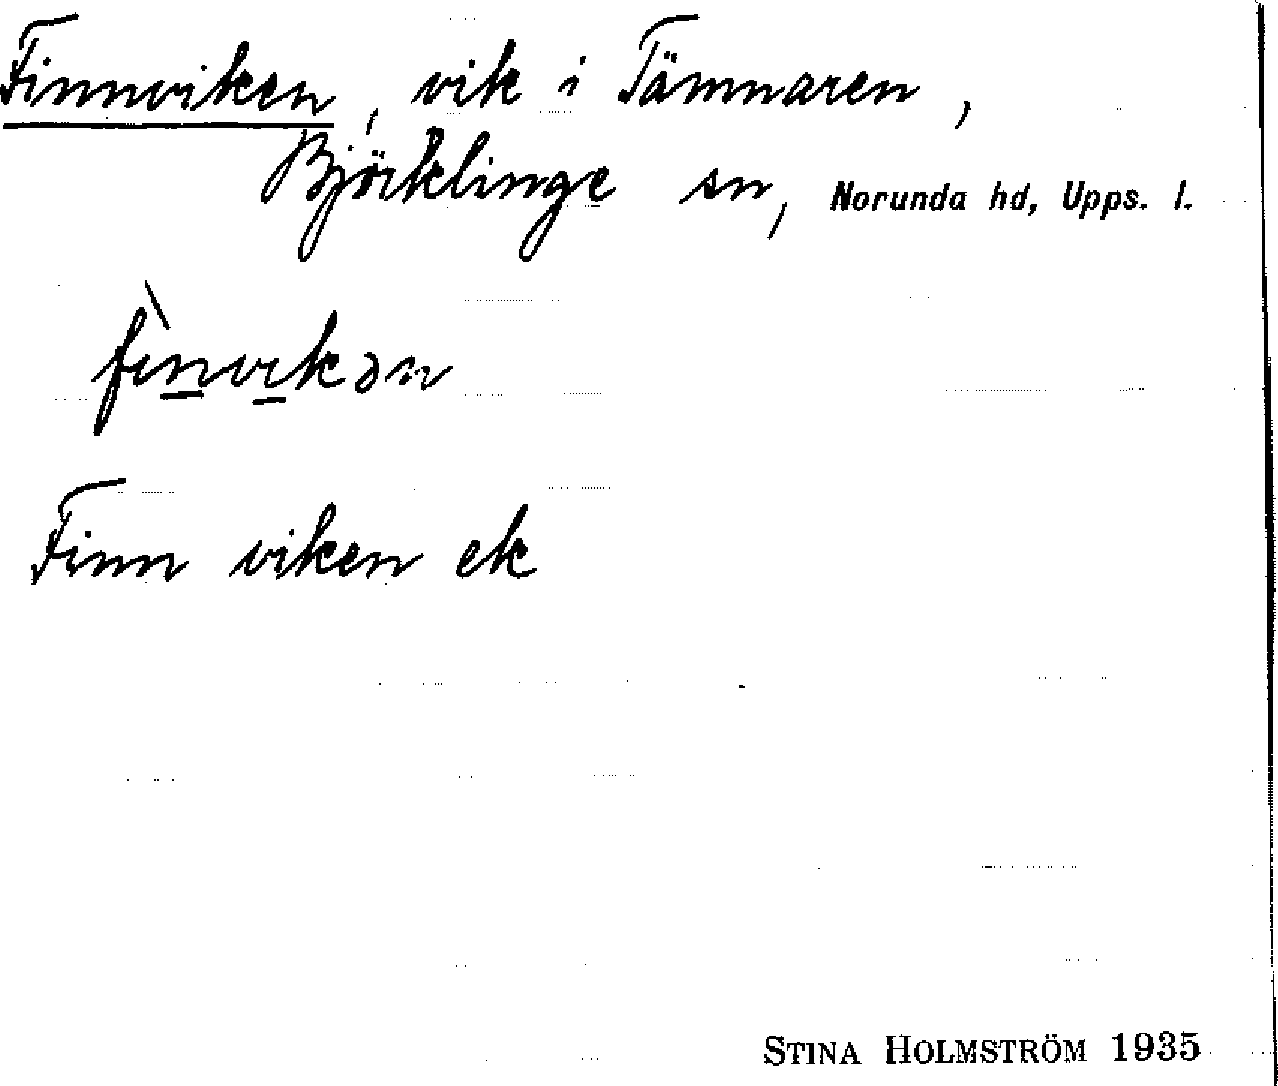 Finnviken, vik i Tämnaren,
Björklinge sn, Norunda hd, Upps. l.
fìn̲vi̲kən
Finn viken ek
STINA HOLMSTRÖM 1935